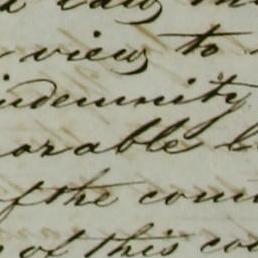 view to
indemnity
orable
of the com
of this co